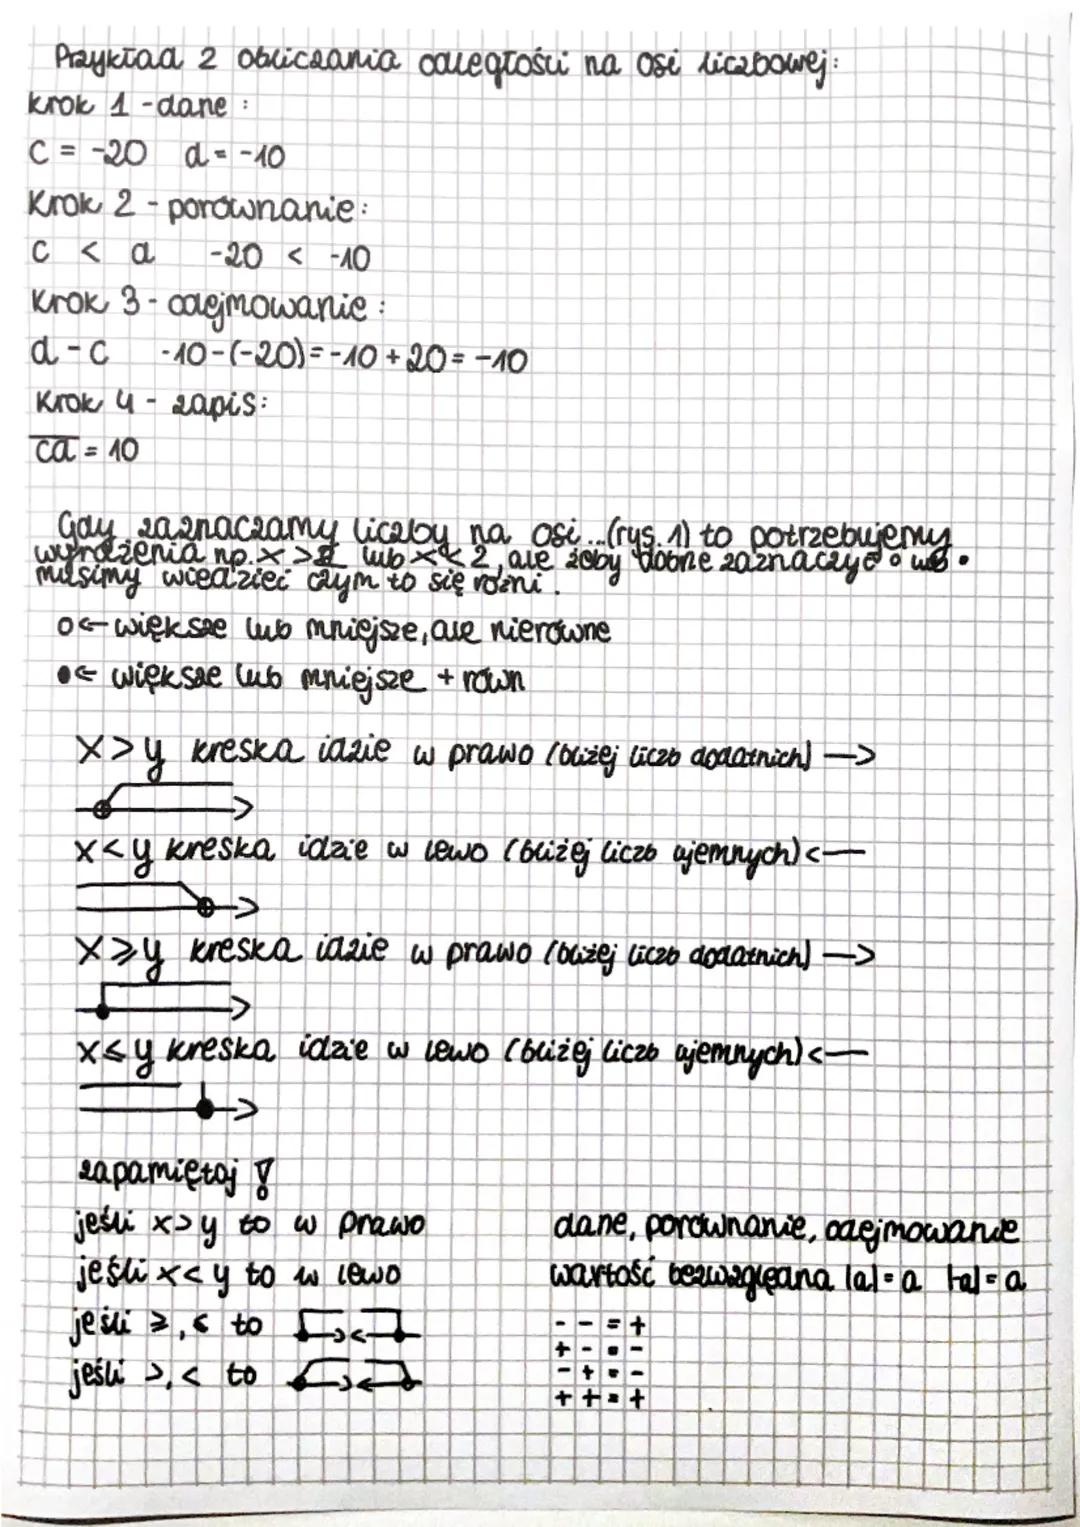 Przykład 2 obliczania odległości na osi liczbowej:
krok 1 - dane :
c = -20 d = -10
Krok 2 - porównanie:
c < d -20 < -10
Krok 3 - odejmowanie :
d - c -10-(-20) = -10 + 20 = -10
Krok 4 - zapis:
cd = 10
Gdy zaznaczamy liczby na osi...(rys. 1) to potrzebujemy
wyrażenia np. x > lub x < 2, ale żeby dobrze zaznaczyć ○ lub •
musimy wiedzieć czym to się różni.
○ ← większe lub mniejsze, ale nierówne
● ← większe lub mniejsze + równ
x > y kreska idzie w prawo (bliżej liczb dodatnich) →
x < y kreska idzie w lewo (bliżej liczb ujemnych) ←
x ⩾ y kreska idzie w prawo (bliżej liczb dodatnich) →
x ⩽ y kreska idzie w lewo (bliżej liczb ujemnych) ←
zapamiętaj !
jeśli x > y to w prawo
jeśli x < y to w lewo
jeśli ⩾, ⩽ to
jeśli >, < to
dane, porównanie, odejmowanie
wartość bezwzględna |a| = a |-a| = a
- - = +
+ - = -
- + = -
+ + = +